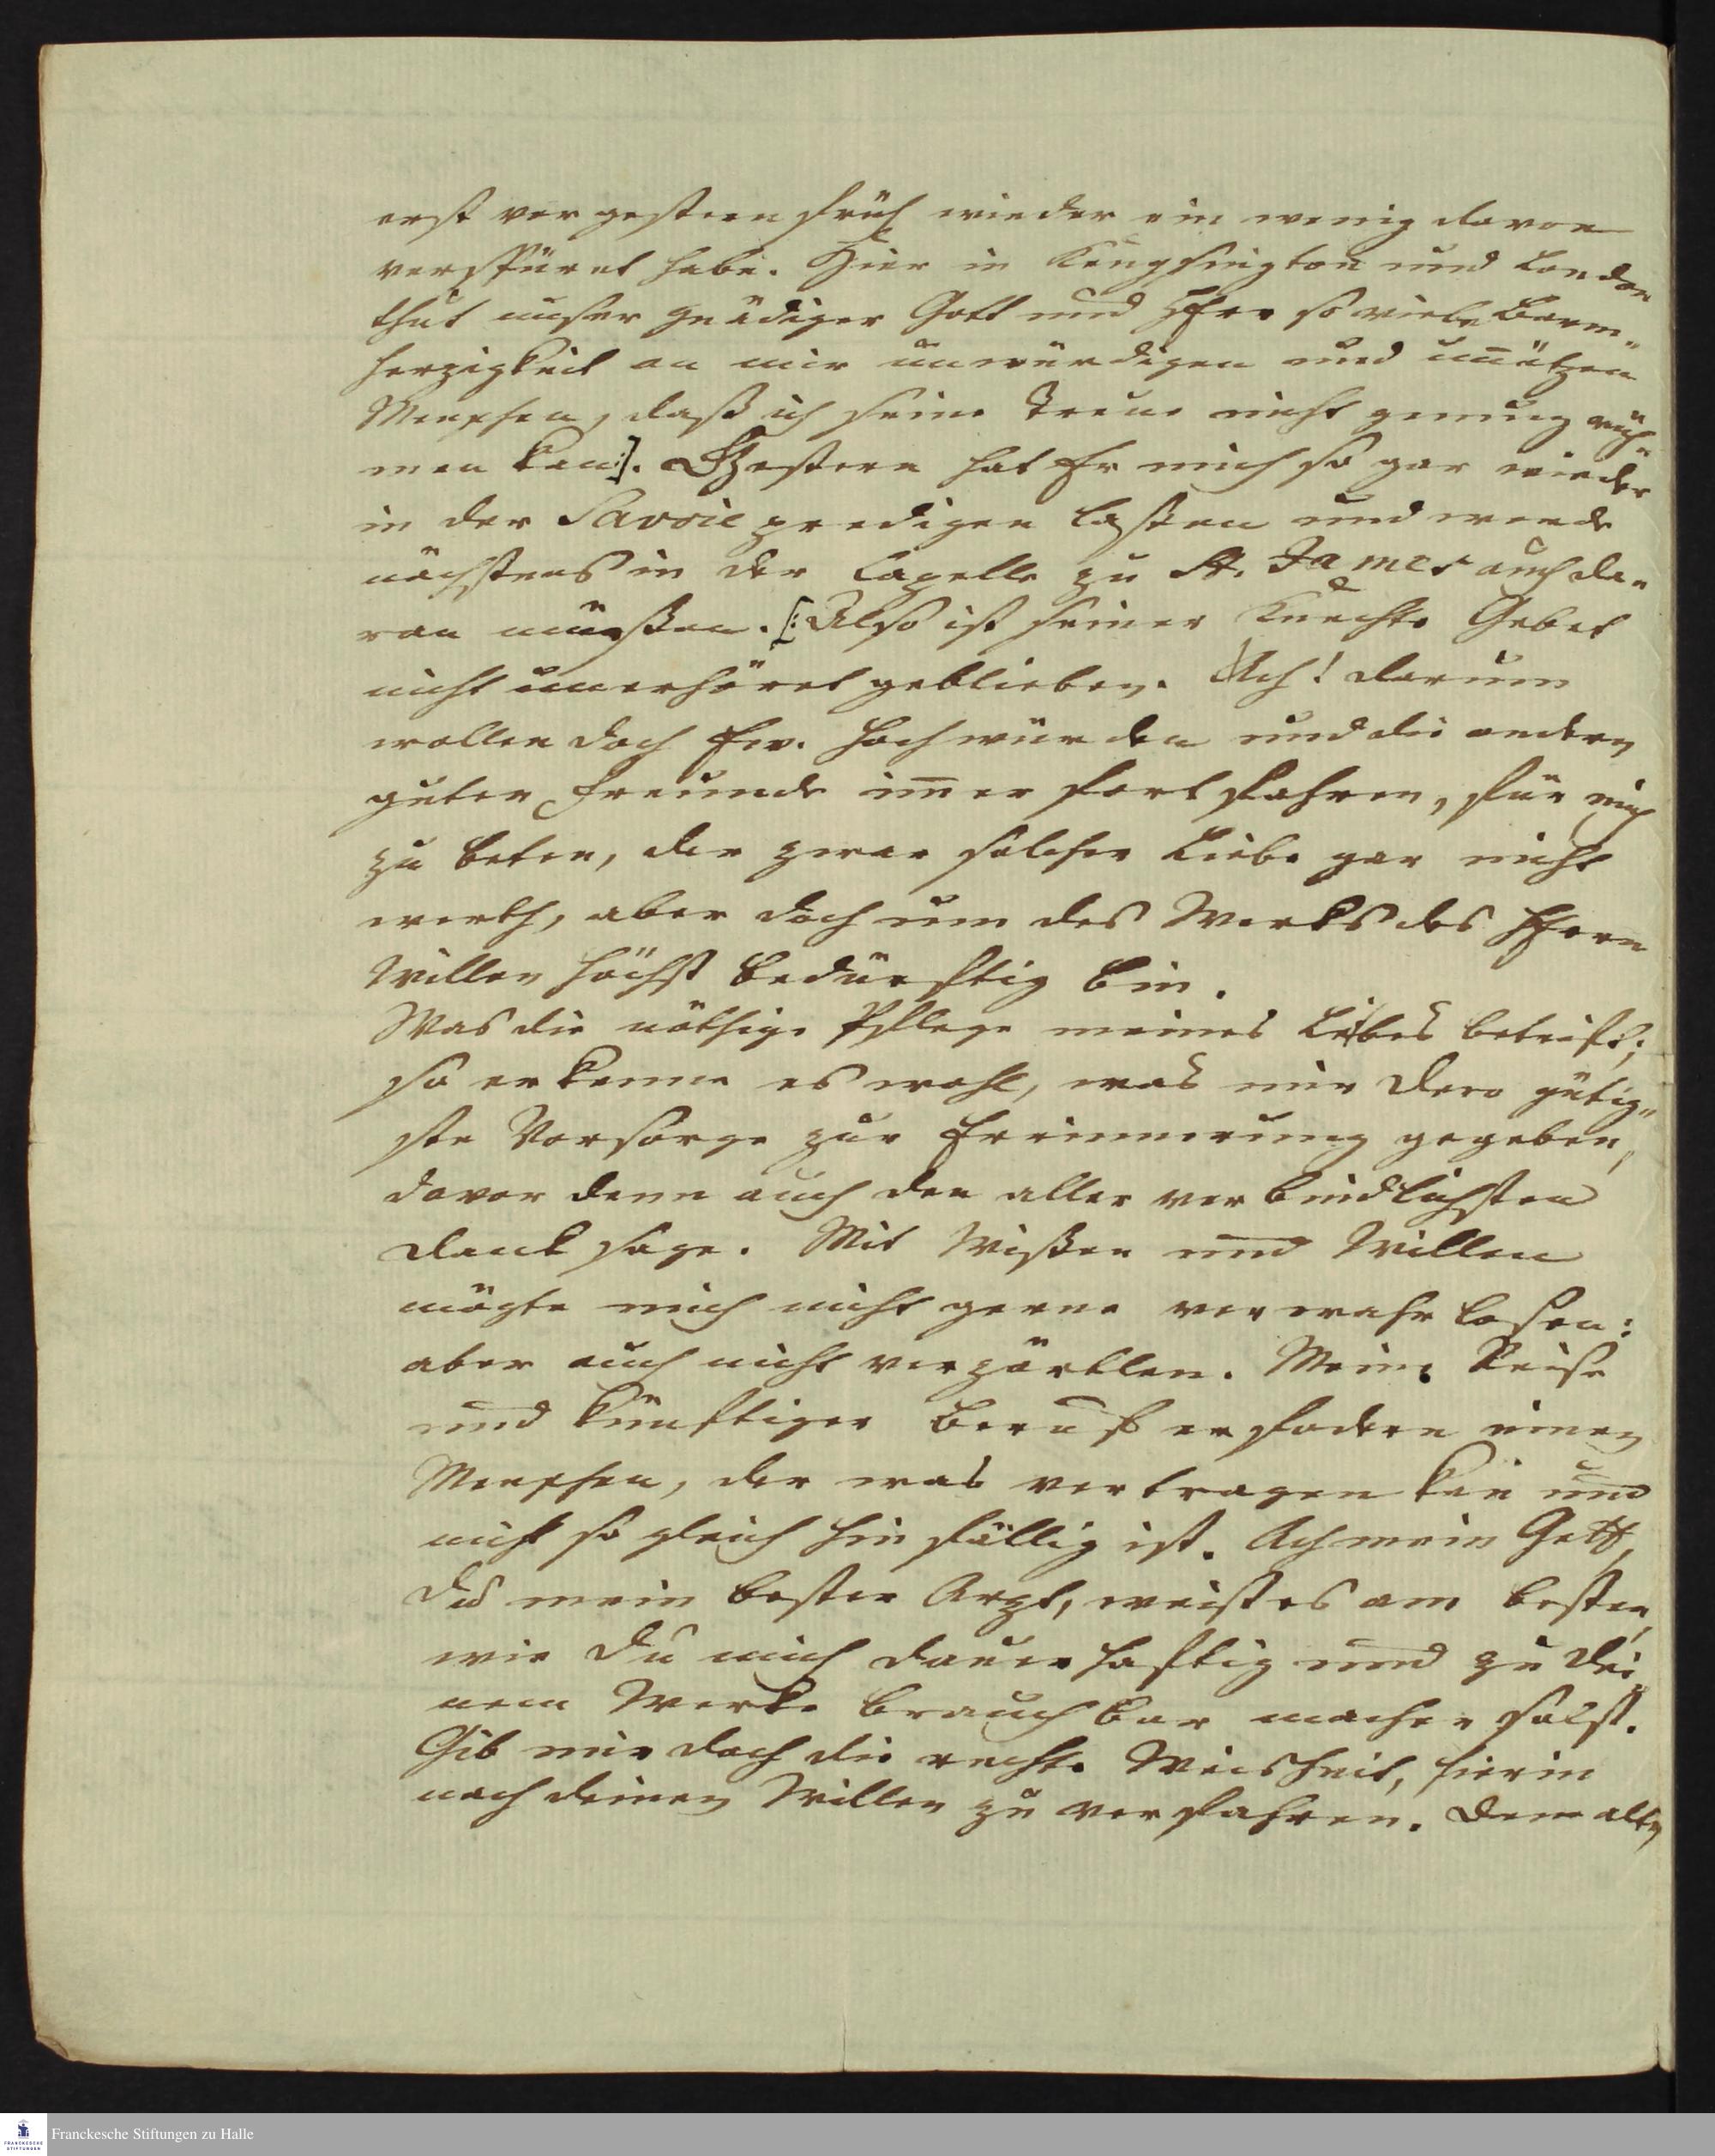 erst vorgestern früh wieder ein wenig davon
verspüret habe. Hier in Kengsington und London
thut unser gnädiger Gott und HErr so viele Barm-
herzigkeit an mir unwürdigen und unützen
Menschen, daß ich seine Treue nicht genung rüh-
men kan:]. Gestern hat Er mich so gar wieder
in der Savoie predigen laßen und werde
nächstens in der Capelle zu St. James auch da-
ran müßen. [:Also ist seiner Knechte Gebet
nicht unerhöret geblieben. Ach! darum
wollen doch Ew. Hochwürden und die andern
guten Freunde im̅er fortfahren, für mich
zu beten, der zwar solcher Liebe gar nicht
werth, aber doch um des Werks des HErrn
Willen höchst bedürftig bin.
Was die nöthige Pflege meines Leibes betrift;
so erkenne es wohl, was mir dero gütig-
ste Vorsorge zur Erinnerung gegeben,
davor denn auch den aller verbindlichsten
Dank sage. Mit Wißen und Willen
mögte mich nicht gerne verwahrlosen:
aber auch nicht verzärtlen. Meine Reise
und künftiger Beruf erfodern einen
Menschen, der was vertragen kan und
nicht so gleich hinfällig ist. Ach mein Gott,
du mein bester Arzt, weist es am besten,
wie Du mich dauerhaftig und zu dei-
nem Werke brauchbar machen solst.
Gib mir doch die rechte Weisheit, hierin
nach deinen Willen zu verfahren. Dem alten
Franckesche Stiftungen zu Halle
FRANCKESCHE
STIFTUNGEN